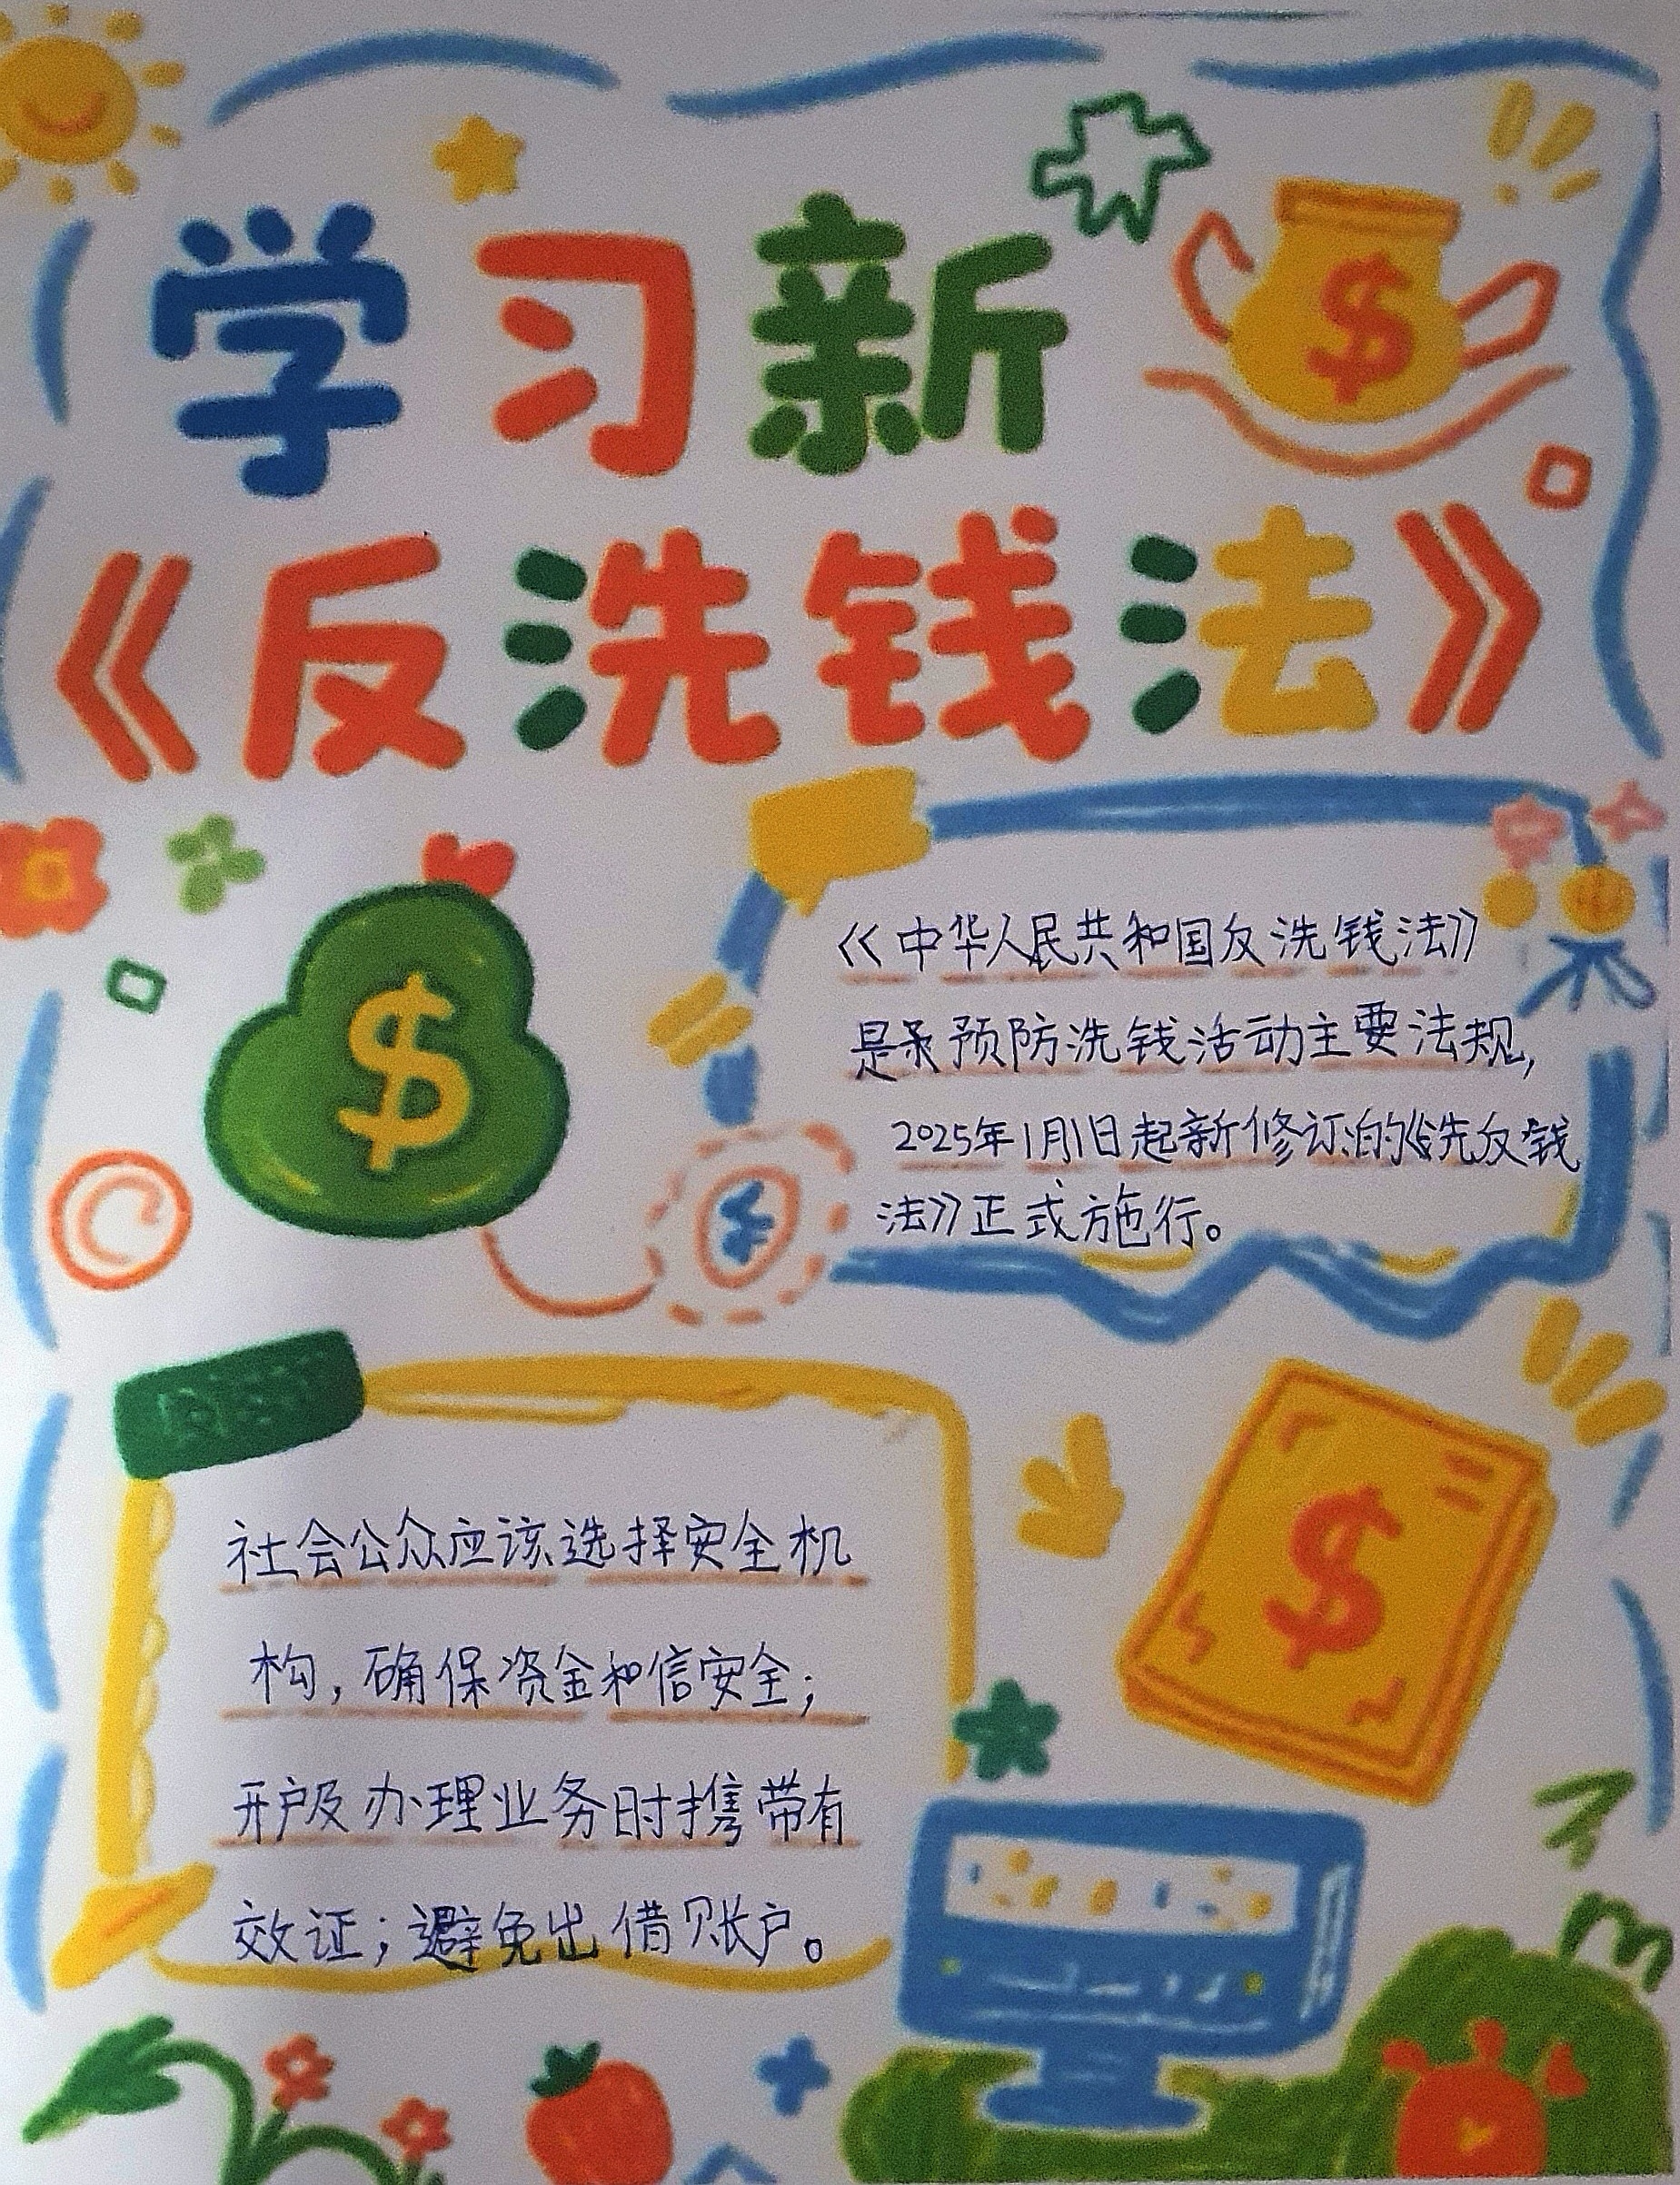 学习新
《反洗钱法》
《中华人民共和国反洗钱法》
是预防洗钱活动主要法规,
2025年1月1日起新修订的《洗反钱
法》正式施行。
社会公众应该选择安全机
构,确保资金和信安全;
开户及办理业务时携带有
效证;避免出借账户。